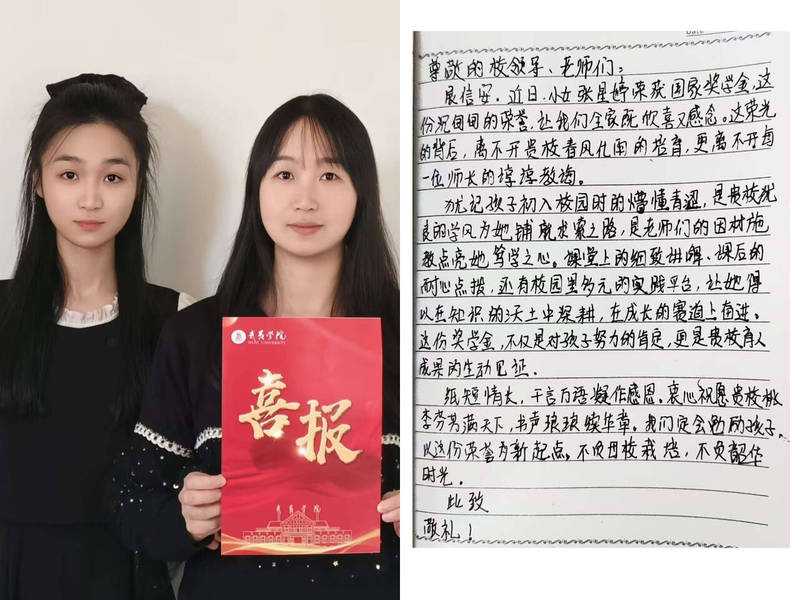 武夷学院
WUYI UNIVERSITY
喜报
武夷学院
Date
尊敬的校领导、老师们:
展信安。近日,小女张星婷荣获国家奖学金,这
份沉甸甸的荣誉,让我们全家既欣喜又感念。这荣光
的背后,离不开贵校春风化雨的培育,更离不开每
一位师长的谆谆教诲。
犹记孩子初入校园时的懵懂青涩,是贵校优
良的学风为她铺就求索之路,是老师们的因材施
教点亮她笃学之心。课堂上的细致讲解、课后的
耐心点拨,还有校园里多元的实践平台,让她得
以在知识的沃土中深耕,在成长的赛道上奋进。
这份奖学金,不仅是对孩子努力的肯定,更是贵校育人
成果的生动见证。
纸短情长,千言万语凝作感恩。衷心祝愿贵校桃
李芬芳满天下,书声琅琅续华章。我们定会勉励孩子,
以这份荣誉为新起点。不负母校栽培,不负韶华
时光。
此致
敬礼!